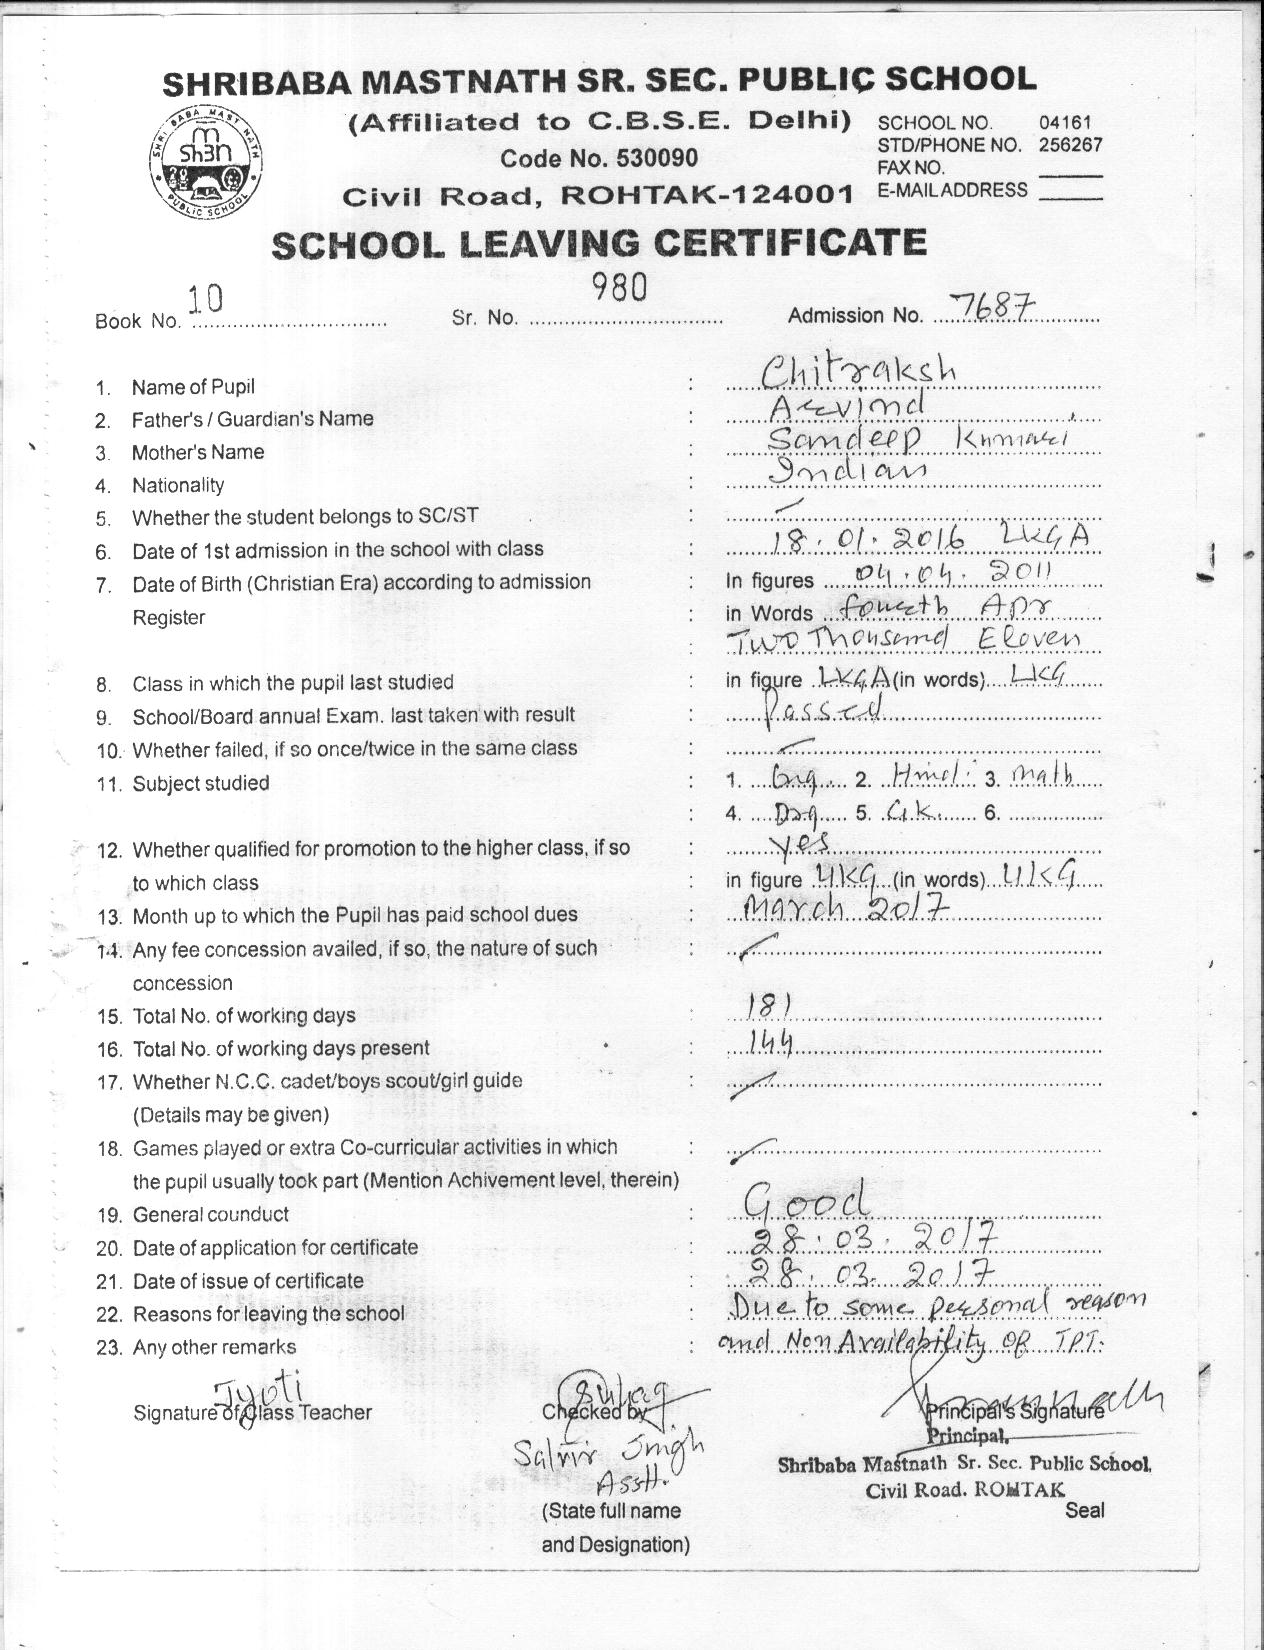 SHRIBABA MASTNATH SR. SEC. PUBLIC SCHOOL
SHRI BABA MAST NATH
PUBLIC SCHOOL
(Affiliated to C.B.S.E. Delhi)
Code No. 530090
Civil Road, ROHTAK-124001
SCHOOL NO. 04161
STD/PHONE NO. 256267
FAX NO.
E-MAIL ADDRESS
SCHOOL LEAVING CERTIFICATE
Book No. 10 Sr. No. 980 Admission No. 7687
1. Name of Pupil : Chitraksh
2. Father's / Guardian's Name : Arvind
3. Mother's Name : Sandeep Kumari
4. Nationality : Indian
5. Whether the student belongs to SC/ST :
6. Date of 1st admission in the school with class : 18.01.2016 LKG A
7. Date of Birth (Christian Era) according to admission : In figures 04.04.2011
Register : in Words fourth Apr
: Two Thousand Eleven
8. Class in which the pupil last studied : in figure LKG A (in words) LKG
9. School/Board annual Exam. last taken with result : Passed
10. Whether failed, if so once/twice in the same class :
11. Subject studied : 1. Eng 2. Hindi 3. Math
: 4. Drg 5. G.K. 6.
12. Whether qualified for promotion to the higher class, if so : yes
to which class : in figure UKG (in words) UKG
13. Month up to which the Pupil has paid school dues : March 2017
14. Any fee concession availed, if so, the nature of such :
concession
15. Total No. of working days : 181
16. Total No. of working days present : 144
17. Whether N.C.C. cadet/boys scout/girl guide :
(Details may be given)
18. Games played or extra Co-curricular activities in which :
the pupil usually took part (Mention Achivement level, therein)
19. General counduct : Good
20. Date of application for certificate : 28.03.2017
21. Date of issue of certificate : 28.03.2017
22. Reasons for leaving the school : Due to some personal reason
23. Any other remarks : and Non Availability of TPT.
Jyoti
Signature of Class Teacher Checked by Principal's Signature
Principal,
Shribaba Mastnath Sr. Sec. Public School,
Civil Road. ROHTAK
Singh
Asstt.
(State full name Seal
and Designation)